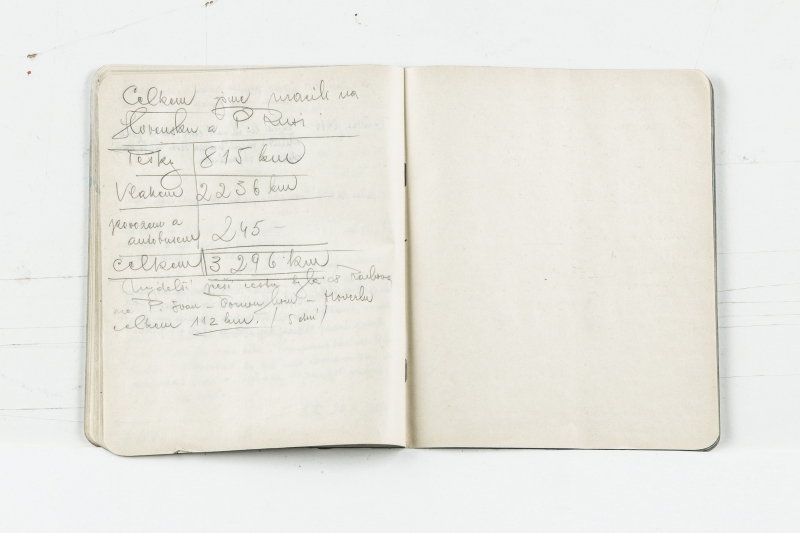 Celkem jsme urazili na
Slovensku a P. Rusi
Pěšky 815 km
Vlakem 2236 km
povozem a
autobusem 245 –
celkem 3 296 km
nejdelší pěší cesta byla
na P. Ivan – – Hoverlu
celkem 112 km. / 5 dní /